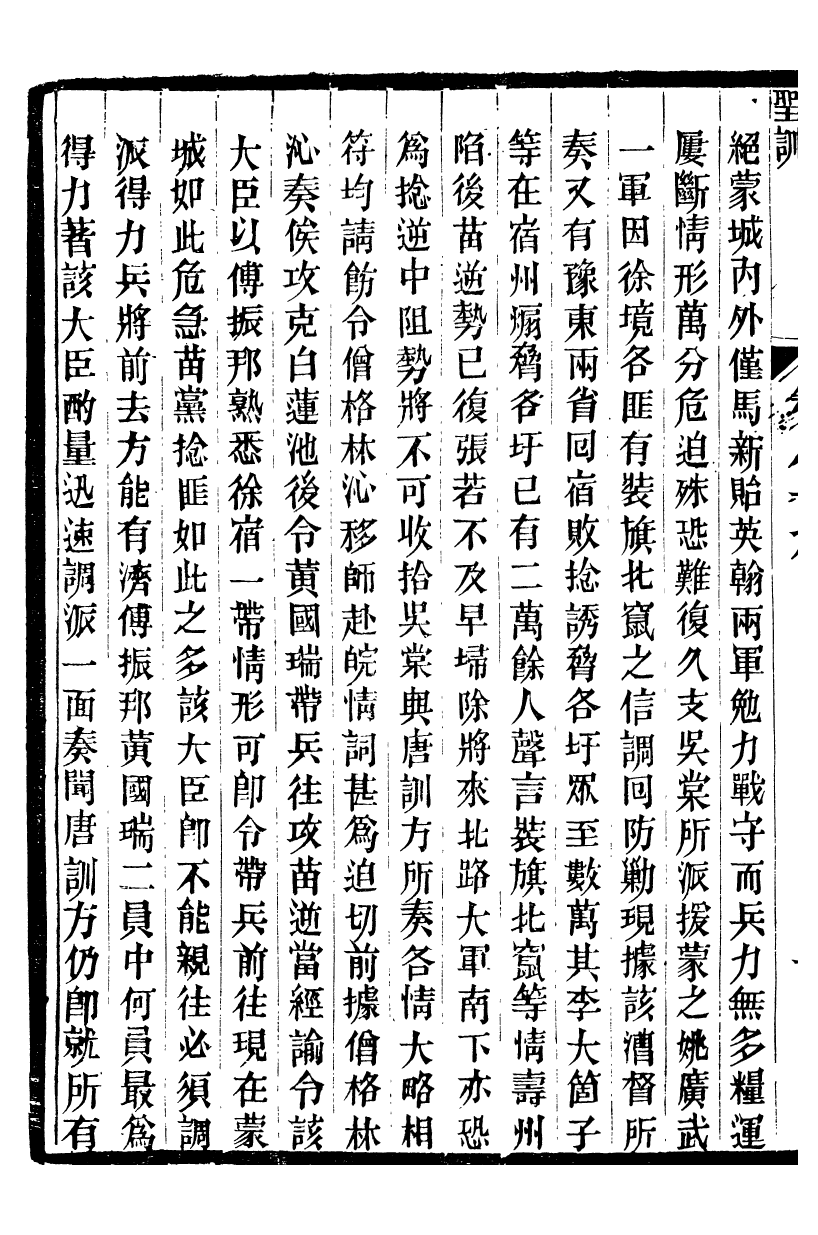 聖訓
絕蒙城內外僅馬新貽英翰兩軍勉力戰守而兵力無多糧運
屢斷情形萬分危迫殊恐難復久支吳棠所派援蒙之姚廣武
一軍因徐境各匪有裝旗北竄之信調回防勦現據該漕督所
奏又有豫東兩省回宿敗捻誘脅各圩眾至數萬其李大箇子
等在宿州煽脅各圩已有二萬餘人聲言裝旗北竄等情壽州
陷後苗逆勢已復張若不及早埽除將來北路大軍南下亦恐
為捻逆中阻勢將不可收拾吳棠與唐訓方所奏各情大略相
符均請飭令僧格林沁移師赴皖情詞甚為迫切前據僧格林
沁奏俟攻克白蓮池後令黃國瑞帶兵往攻苗逆當經諭令該
大臣以傅振邦熟悉徐宿一帶情形可卽令帶兵前往現在蒙
城如此危急苗黨捻匪如此之多該大臣卽不能親往必須調
派得力兵將前去方能有濟傅振邦黃國瑞二員中何員最為
得力著該大臣酌量迅速調派一面奏聞唐訓方仍卽就所有